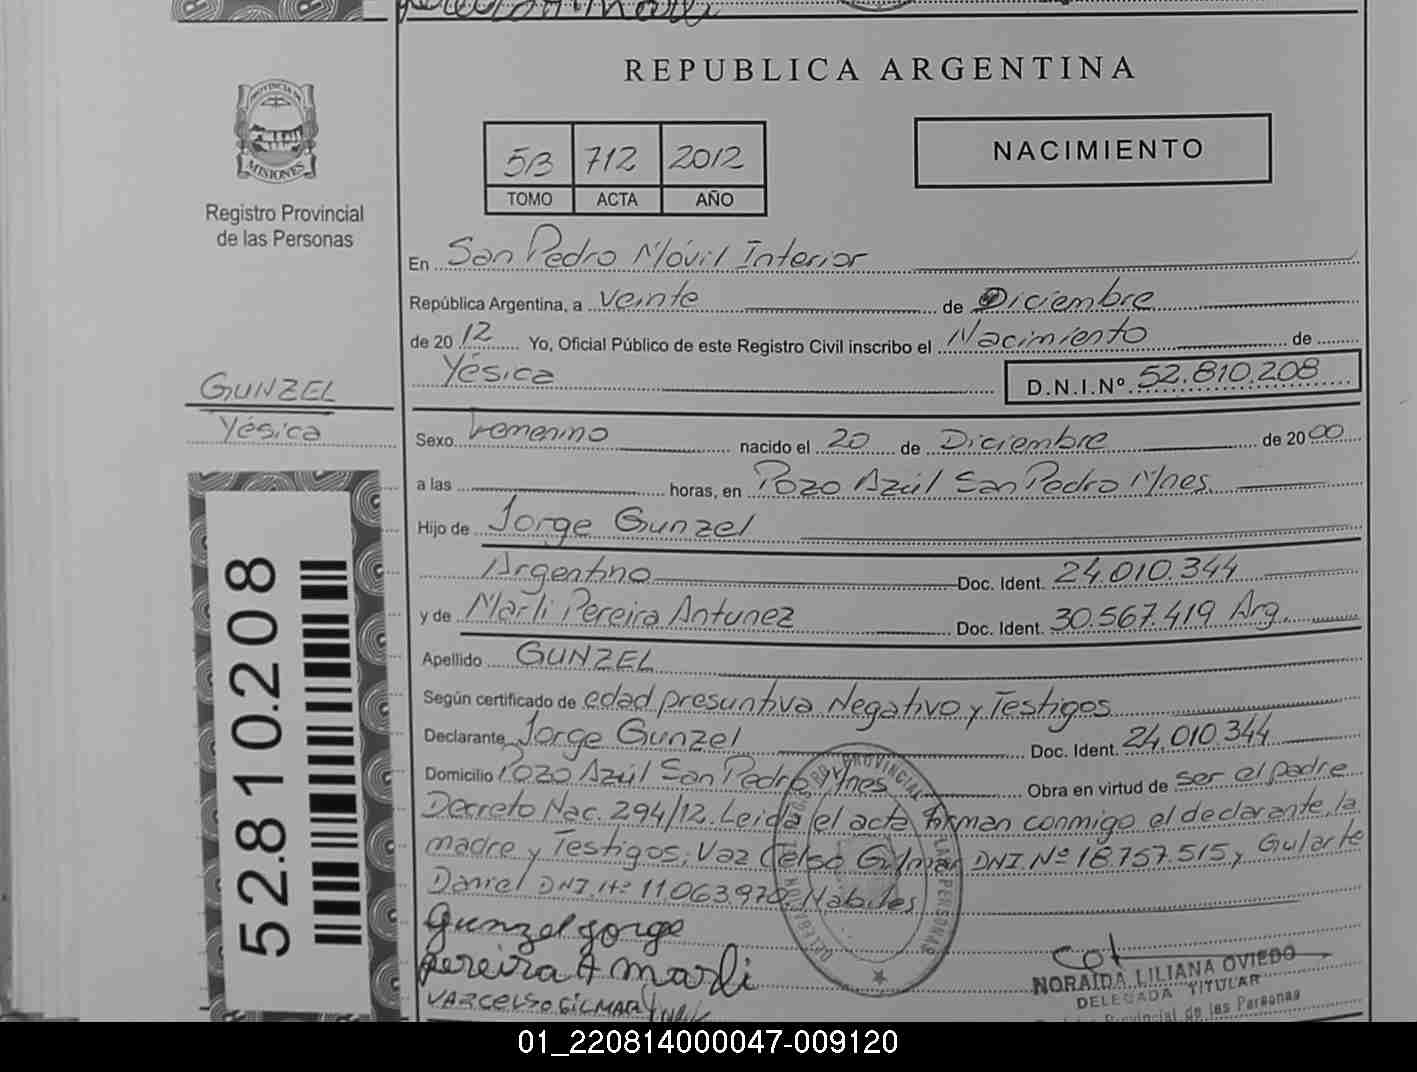 REPUBLICA ARGENTINA
PROVINCIA DE
MISIONES
Registro Provincial
de las Personas
5/3 712 2012
TOMO ACTA AÑO
NACIMIENTO
En San Pedro Móvil Interior
República Argentina, a veinte de Diciembre
de 2012 Yo, Oficial Público de este Registro Civil inscribo el Nacimiento de
Yésica D.N.I.Nº 52.810.208
GUNZEL
Yésica
Sexo Femenino nacido el 20 de Diciembre de 2000
a las horas, en Pozo Azúl San Pedro Mnes.
Hijo de Jorge Gunzel
Argentino Doc. Ident. 24.010.344
y de Marli Pereira Antunez Doc. Ident. 30.567.419 Arg.
Apellido GUNZEL
Según certificado de edad presuntiva Negativo y Testigos
Declarante Jorge Gunzel Doc. Ident. 24.010.344
Domicilio Pozo Azúl San Pedro Mnes Obra en virtud de ser el padre
Decreto Nac. 294/12. Leida el acta firman conmigo el declarante, la
madre y Testigos; Vaz Celso Gilmar DNI Nº 18.757.515 y Gularte
Daniel DNI Nº 11.063.970. Habiles
Gunzel Jorge
pereira A marli
VAZ CELSO GILMAR
NORAIDA LILIANA OVIEDO
DELEGADA TITULAR
Provincial de las Personas
52.810.208
01_220814000047-009120